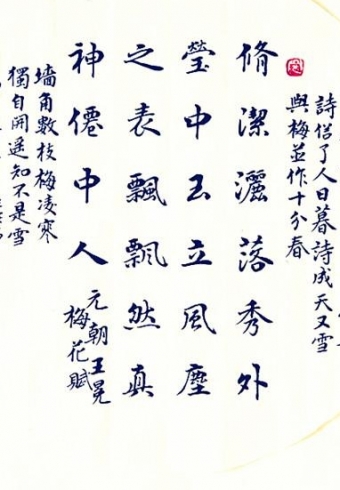 詩俗了人日暮詩成天又雪
與梅並作十分春
脩潔灑落秀外
瑩中玉立風塵
之表飄飄然真
神僊中人
元朝王冕
梅花賦
墻角數枝梅凌寒
獨自開遥知不是雪